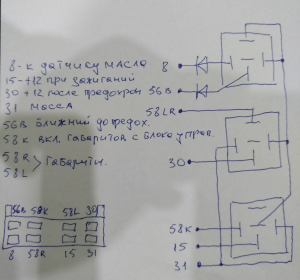 8-к датчику масла
15-+12 при зажигании
30 +12 после предохран
31 масса
56В ближний до редох.
58К вкл. габаритов с блока управ.
58R
58L
> габариты.
8
56В
58LR
30
58К
15
31
56В 58К 58L 30
8 58R 15 31